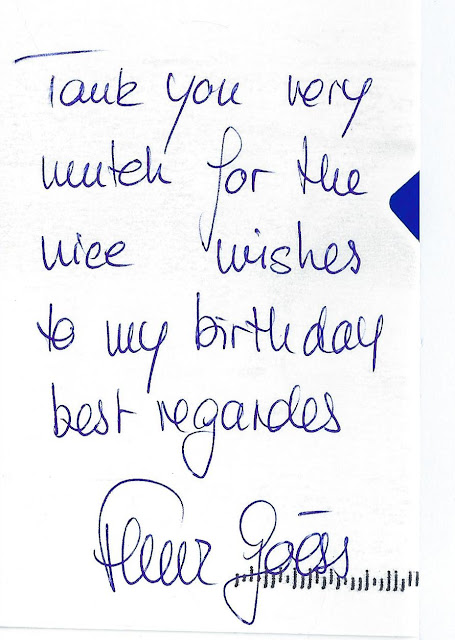 Tank you very
mutch for the
nice wishes
to my birthday
best regardes
Goëss